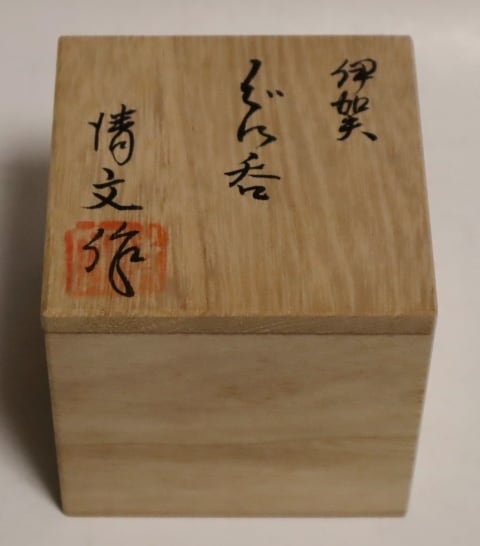 伊賀
ぐい呑
清文作